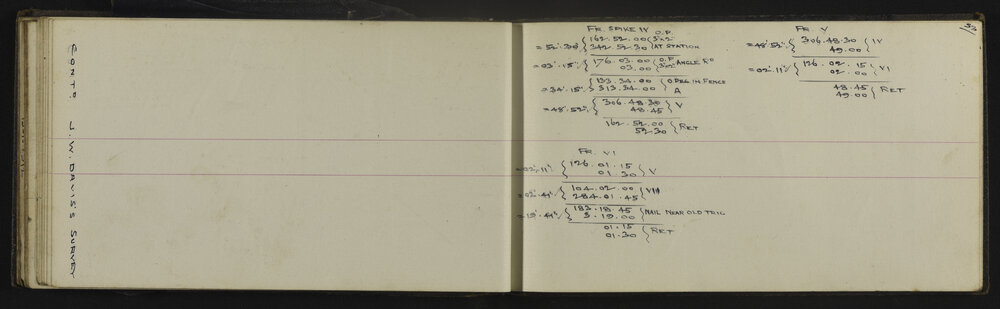 CONTD J.W. DAVIS'S SURVEY
53
FR. SPIKE IV
= 52'.30" { 162.52.00 ( O.P. 3"x2"
342.52.30 ( AT STATION
= 03'.15" { 176.03.00 ( O.P. ANGLE RD
03.00 ( 3"x2"
= 34'.15" { 133.34.00 ( O PEG IN FENCE
313.34.00 A
= 48'.52" { 306.48.30 } V
48.45
162.52.00 { RET
52.30
FR. V
= 48'.52" { 306.48.30 ( IV
49.00
= 02'.11" { 126.02.15 ( VI
02.00
48.45 { RET
49.00
FR. VI
= 02'.11" { 126.01.15 } V
01.30
= 02'.41" { 104.02.00 { VII
284.01.45
= 19'.41" { 183.18.45 { NAIL NEAR OLD TRIG
3.19.00
01.15 { RET
01.30